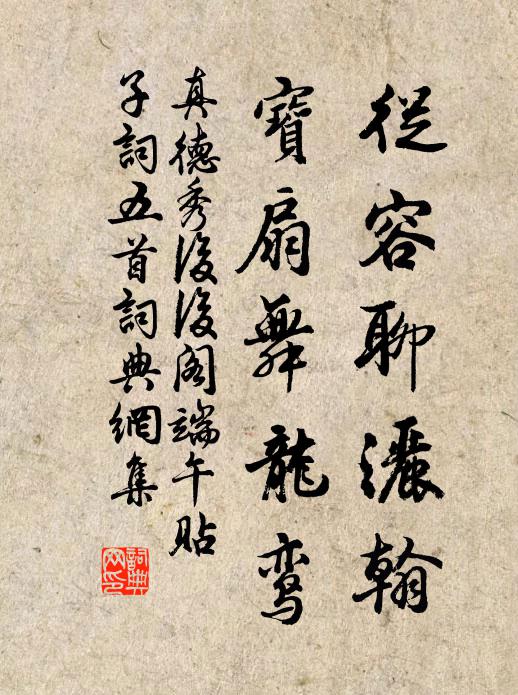 從容聊灑翰
寶扇舞龍鸾
真德秀後後阁端午贴
子詞五首詞典網集
詞典网印